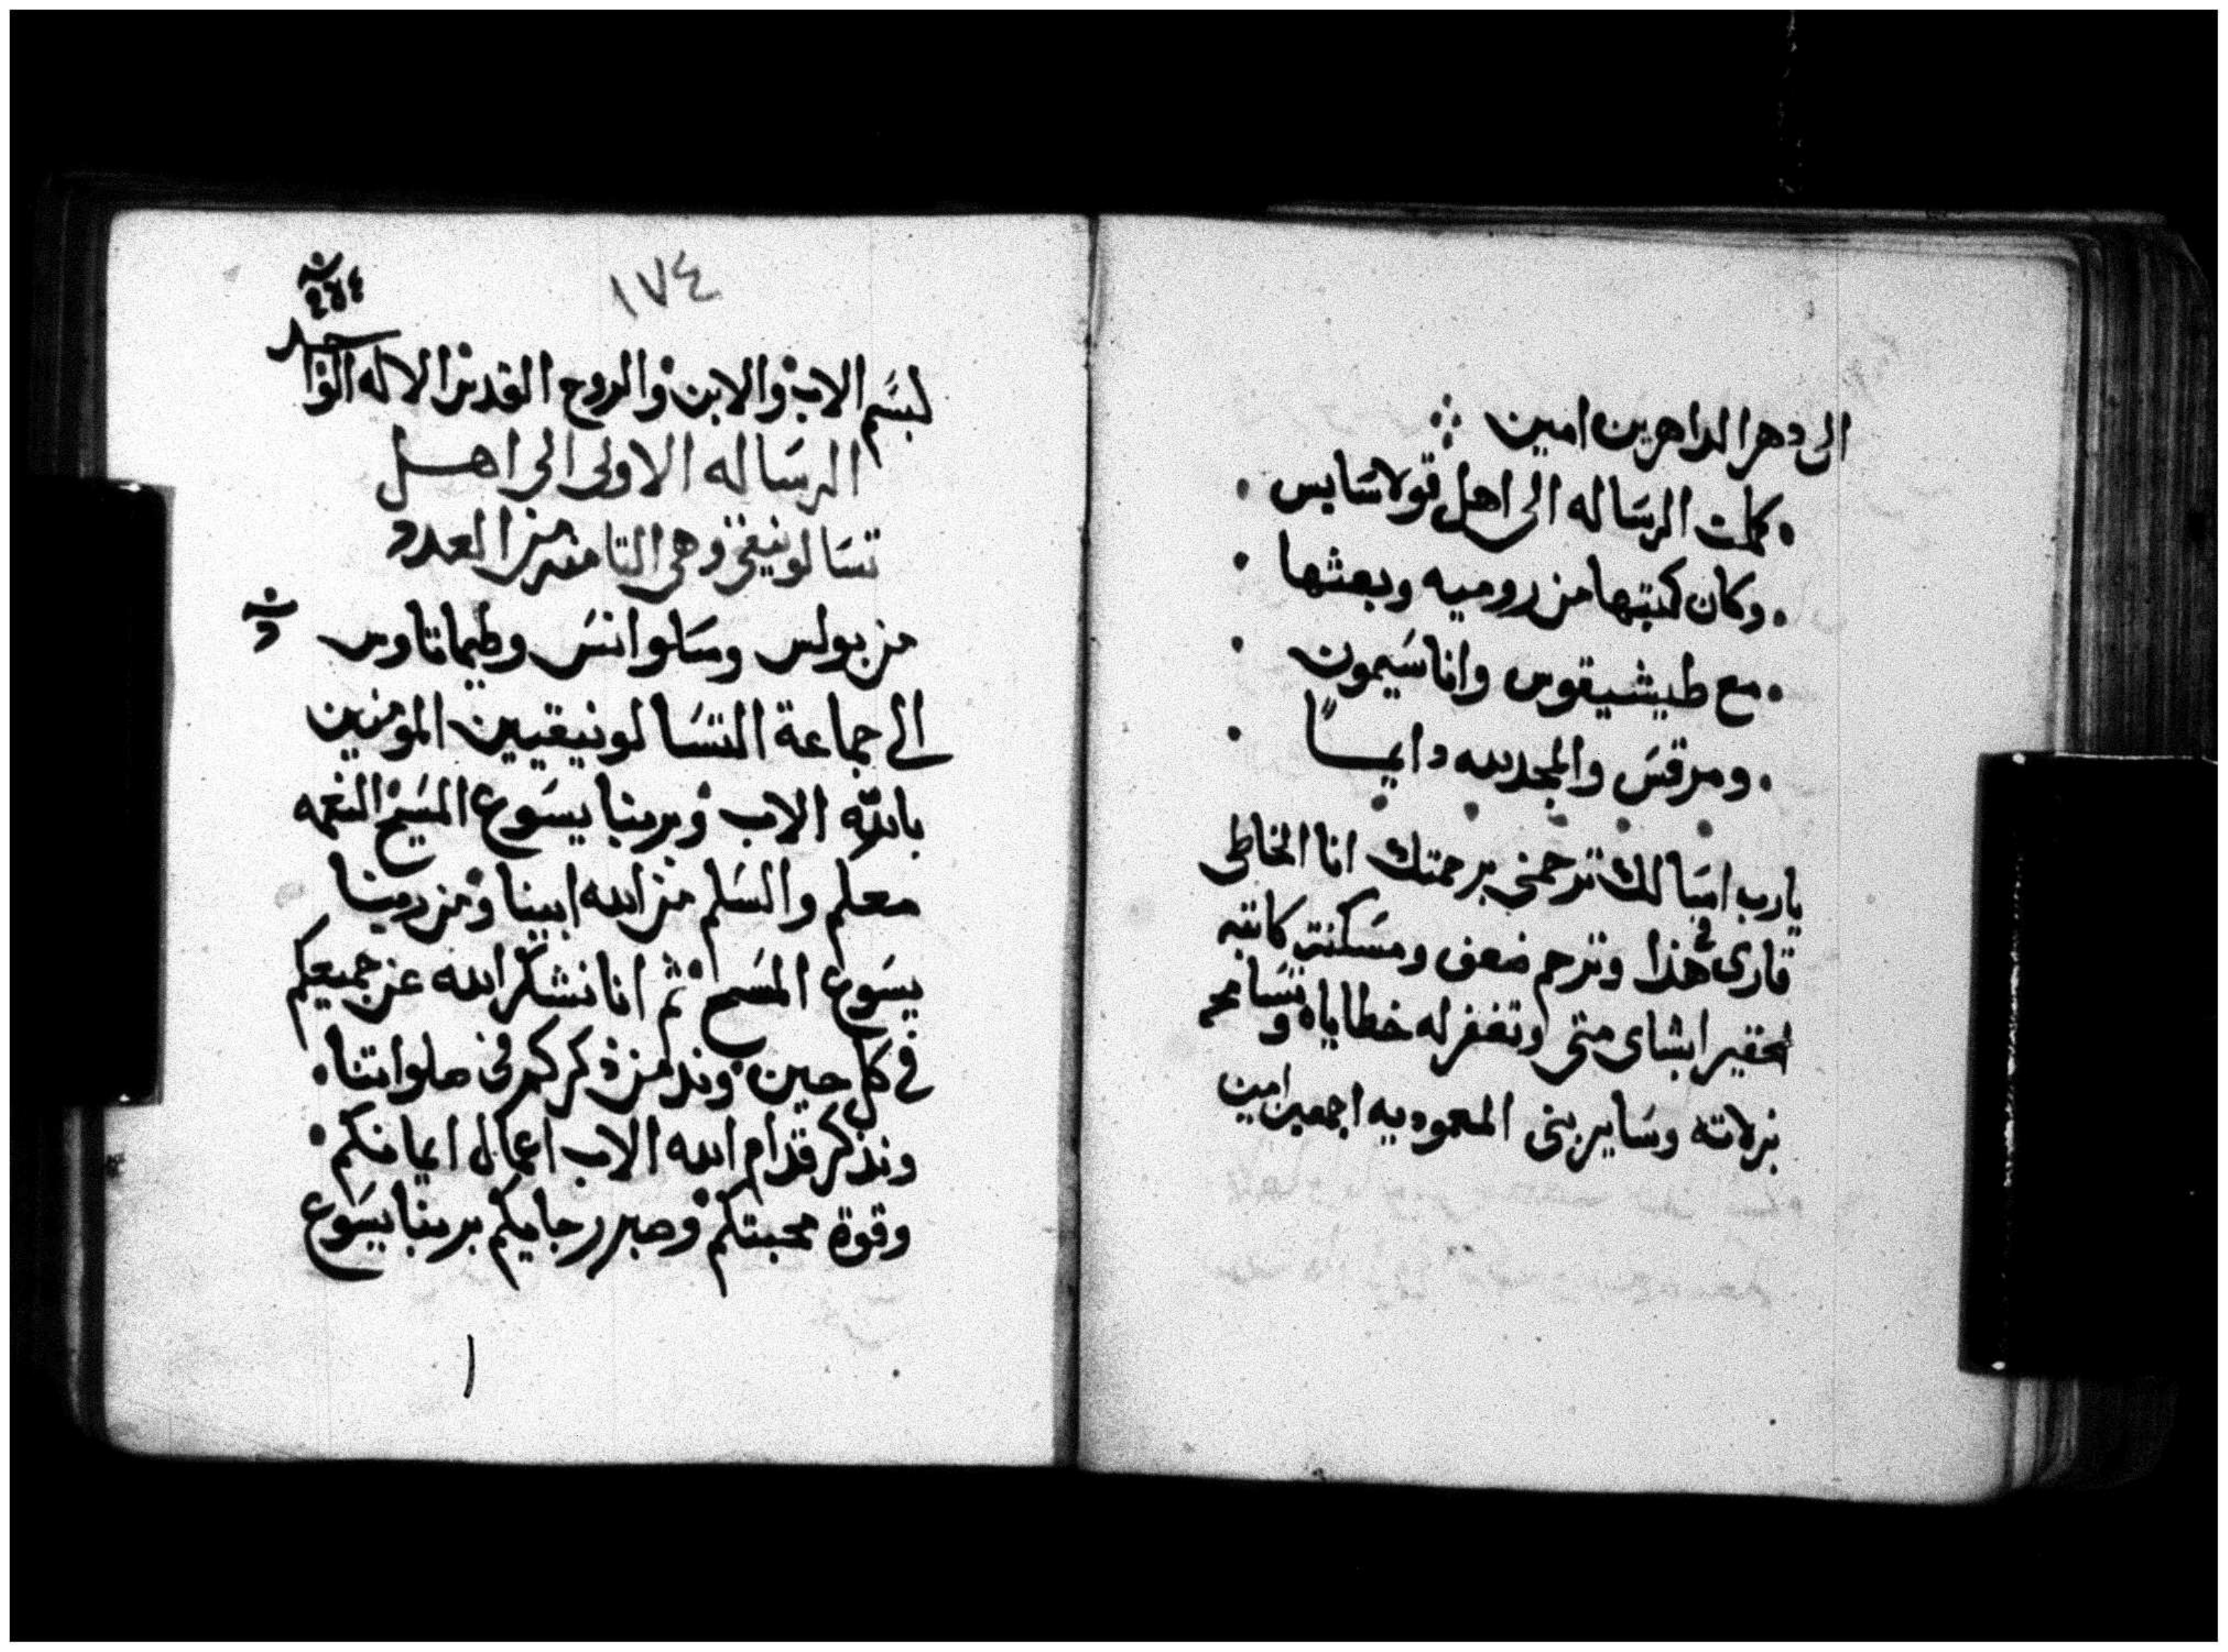 الى دهر الداهرين امين
كملت الرساله الى اهل قولاسايس
وكان كتبها من روميه وبعثها
مع طيشيقوس واناسيمون
ومرقس والمجد لله دايمًا
يارب اسالك ترحمني برحمتك انا الخاطى
قارى فى هذا وترحم ضعف ومسكنت كاتبه
الحقير ابشاى متى وتغفر له خطاياه وتسامحه
بزلاته وساير بنى المعموديه اجمعين امين
١٧٤
بسم الاب والابن والروح القدس الاله الواحد
الرساله الاولى الى اهل
تسالونيقى وهى الثامنه من العدد
من بولس وسلوانس وطيماتاوس
الى جماعة التسالونيقيين المومنين
بالله الاب وبربنا يسوع المسيح النعمه
معكم والسلم من الله ابينا ومن ربنا
يسوع المسيح ثم انا نشكر الله عن جميعكم
فى كل حين وندمن ذكركم فى صلواتنا
ونذكر قدام الله الاب اعمال ايمانكم
وقوة محبتكم وصبر رجايكم بربنا يسوع